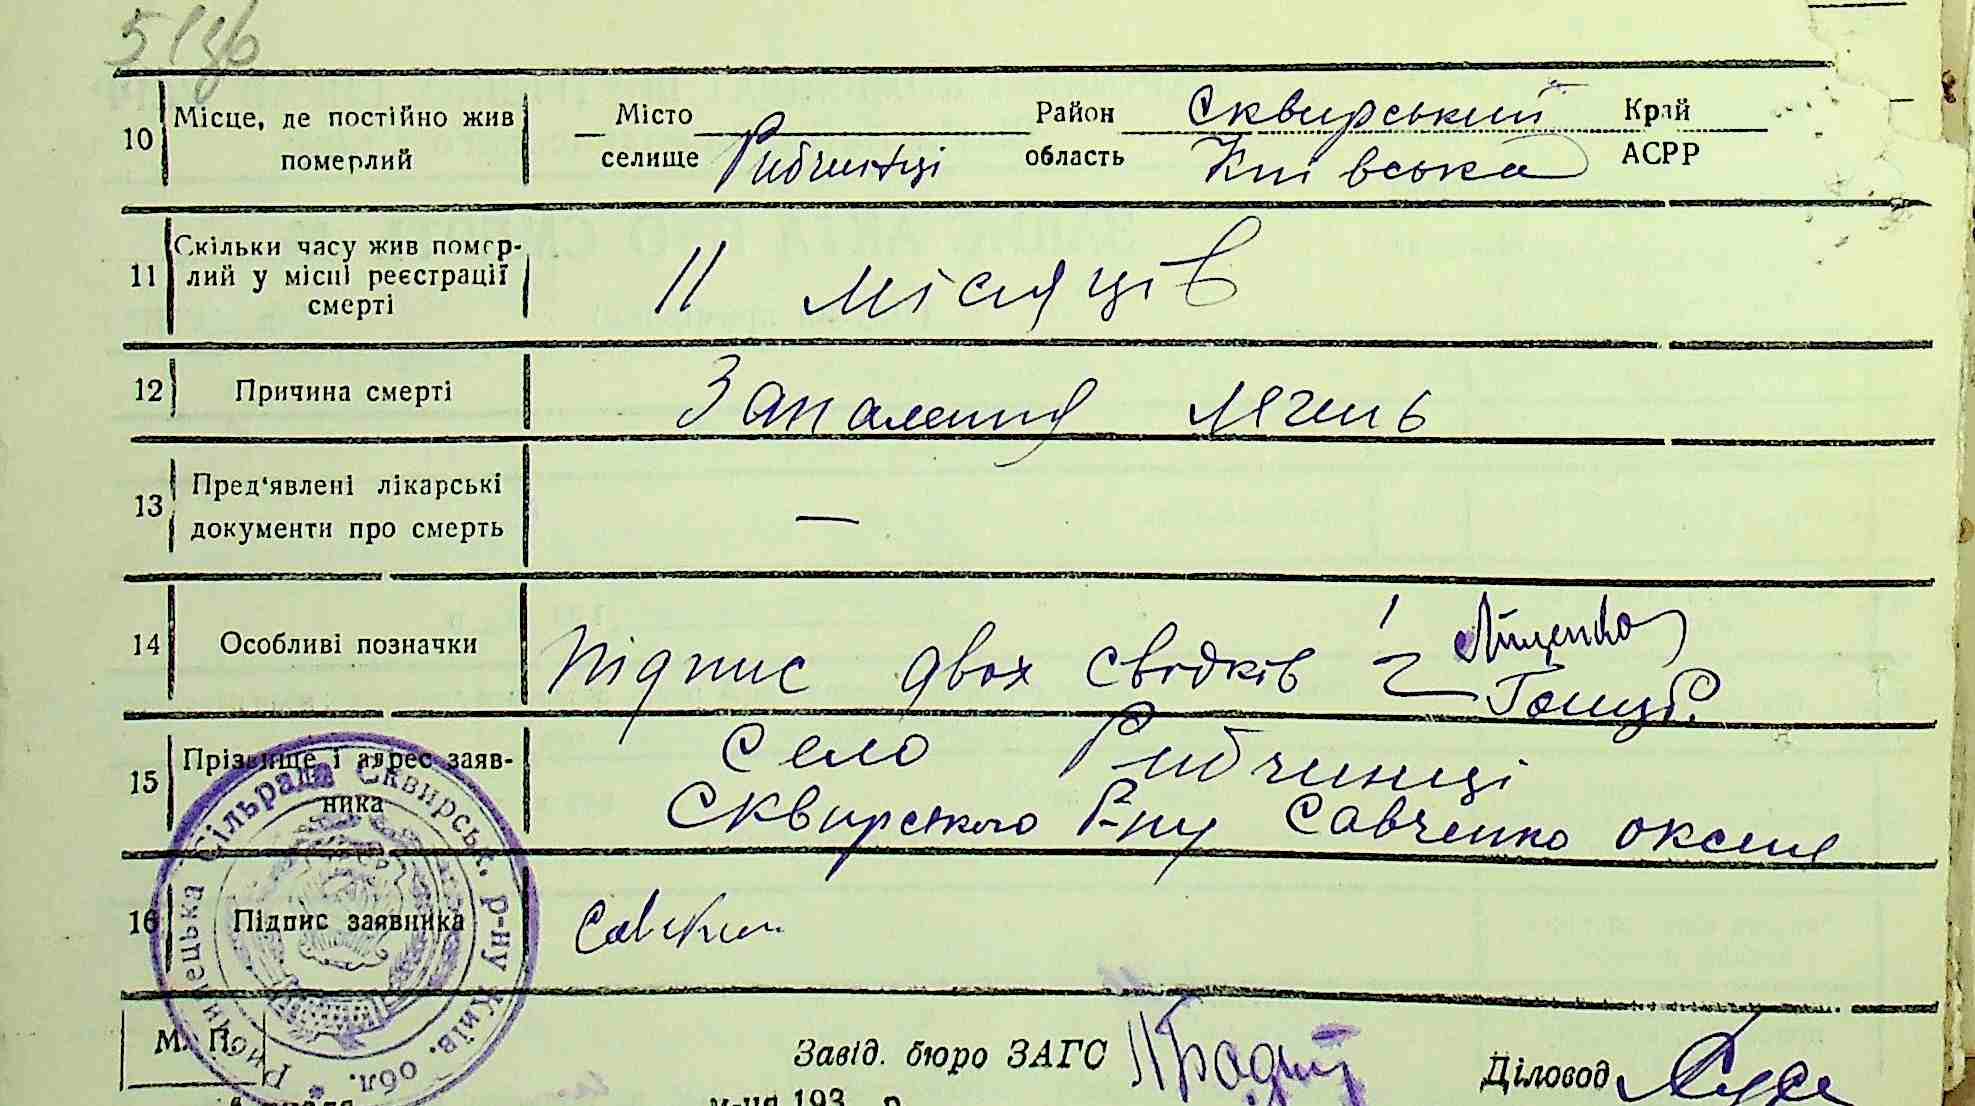 10 Місце, де постійно жив померлий
Місто селище Рибчинці
Район Сквирський Край
область Київська АСРР
11 Скільки часу жив помер-
лий у місці реєстрації
смерті
11 місяців
12 Причина смерті Запалення лягень
13 Пред'явлені лікарські
документи про смерть
—
14 Особливі позначки Підпис двох свідків 1
2
15 Прізвище і адрес заяв-
ника
Село Рибчинці
Сквирського р-ну Савченко Оксана
16 Підпис заявника
Сільрада Сквирськ. р-ну Київ. обл.
М. П.
Завід. бюро ЗАГС
Діловод
193 р.